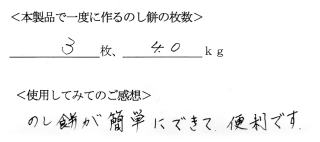 ＜本製品で一度に作るのし餅の枚数＞
3枚、4.0kg
＜使用してみてのご感想＞
のし餅が簡単にできて、便利です。